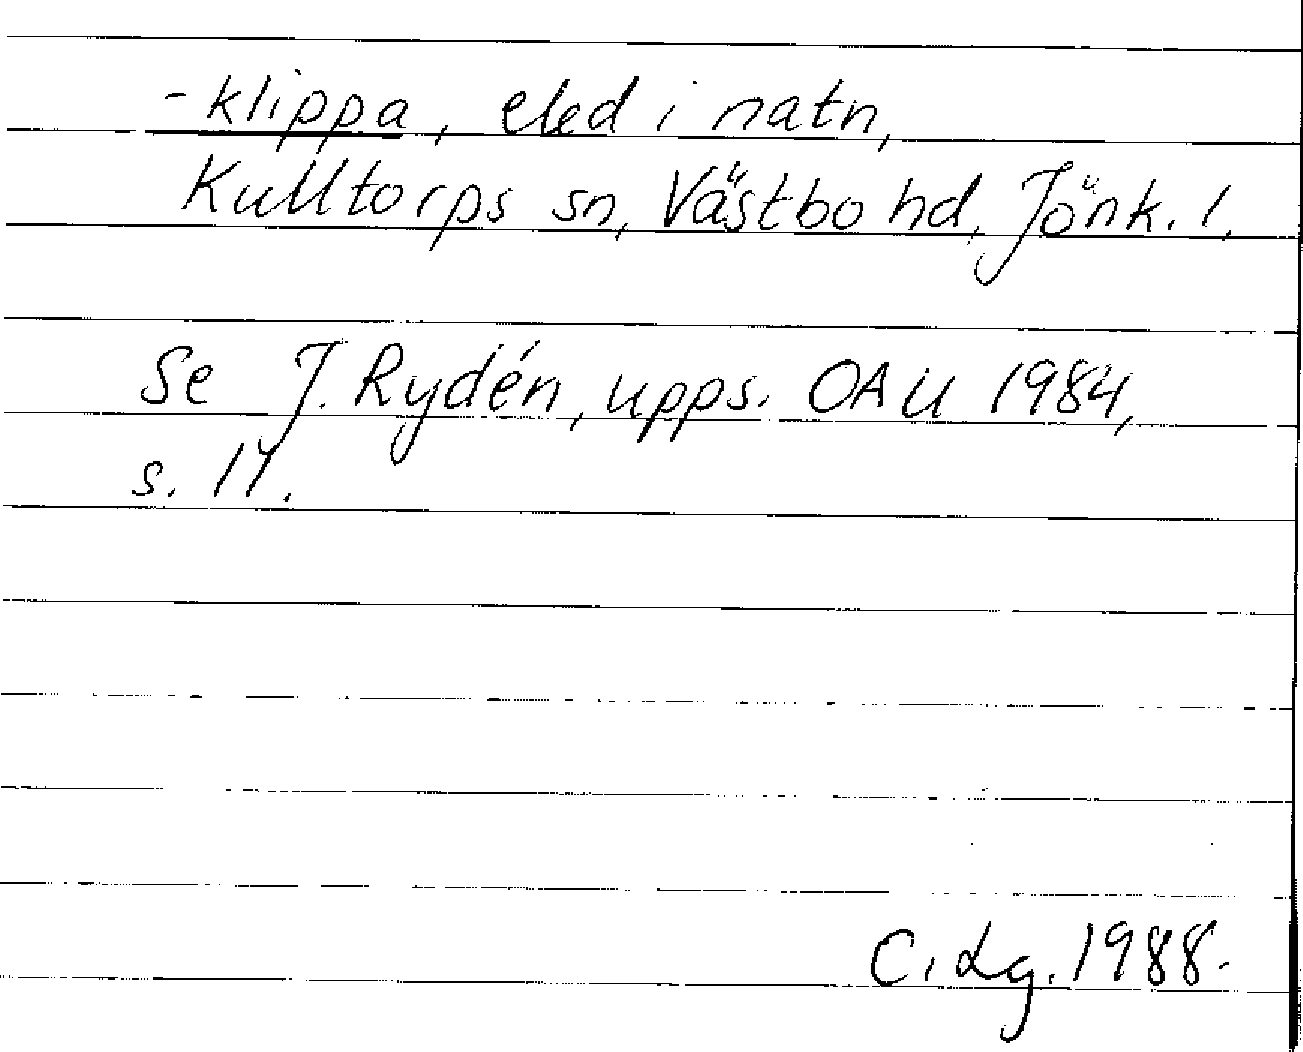 -klippa, eled i natn,
Kulltorps sn, Västbo hd, Jönk. l.
Se J. Rydén, upps. OAU 1984,
s. 17.
C. Lg. 1988.